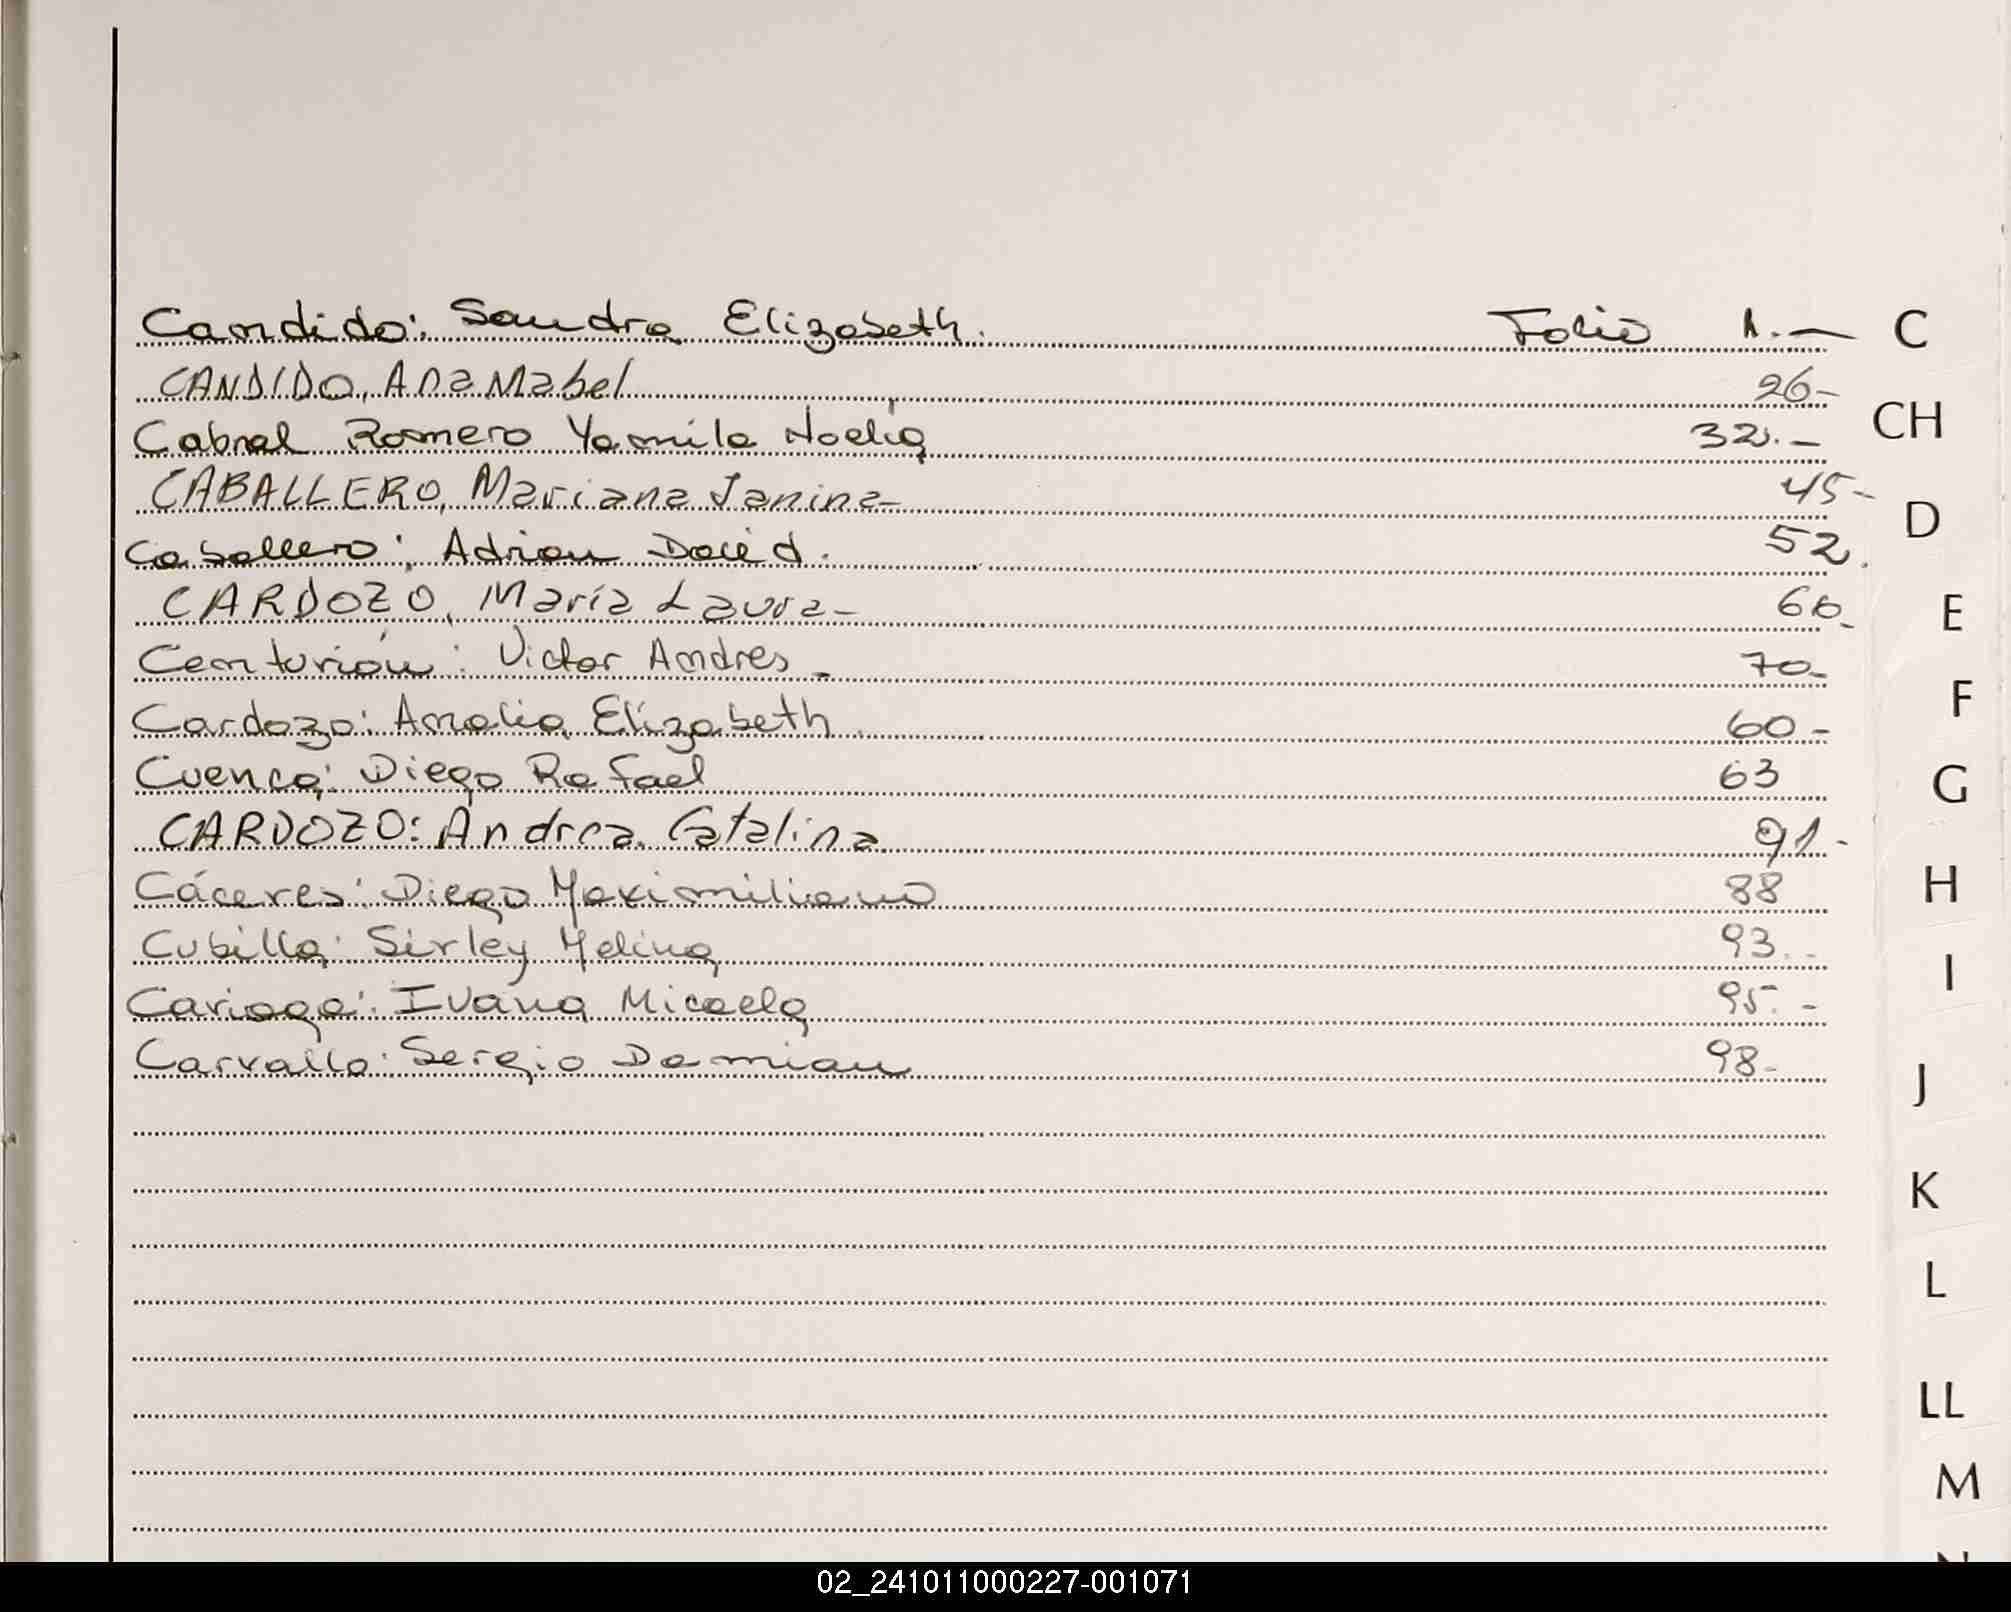 Candido: Sandra Elizabeth. Folio 1.— C
CANDIDO, Ana Mabel 26-
CH
Cabral Romero Yamila Noelia 32.-
CABALLERO, Mariana Janina- 45-
D
Caballero: Adrian David. 52.
CARDOZO, María Laura- 60-
E
Centurión: Victor Andres- 70-
F
Cardozo: Amalia Elizabeth. 60-
Cuenca: Diego Rafael 63
G
CARDOZO: Andrea Catalina 91-
Cáceres: Diego Maximiliano 88
H
Cubilla: Sirley Melina 93.-
I
Cariaga: Ivana Micaela 95.-
Carvallo: Sergio Damian 98-
J
K
L
LL
M
02_241011000227-001071